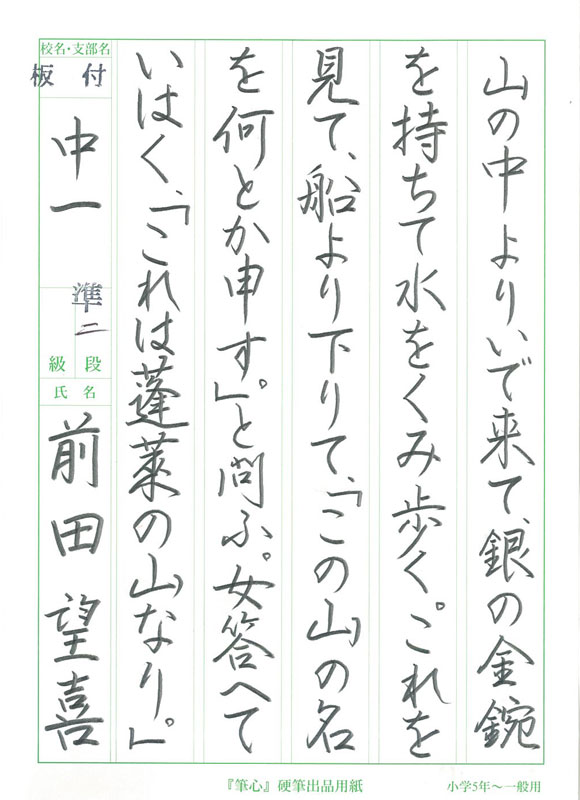 山の中よりいで来て、銀の金鋺
を持ちて水をくみ歩く。これを
見て、船より下りて、「この山の名
を何とか申す」。と問ふ。女答へて
いはく、「これは蓬莱の山なり」。
校名・支部名
板付
中一
準二
級段
氏名
前田望喜
『筆心』硬筆出品用紙
小学5年～一般用